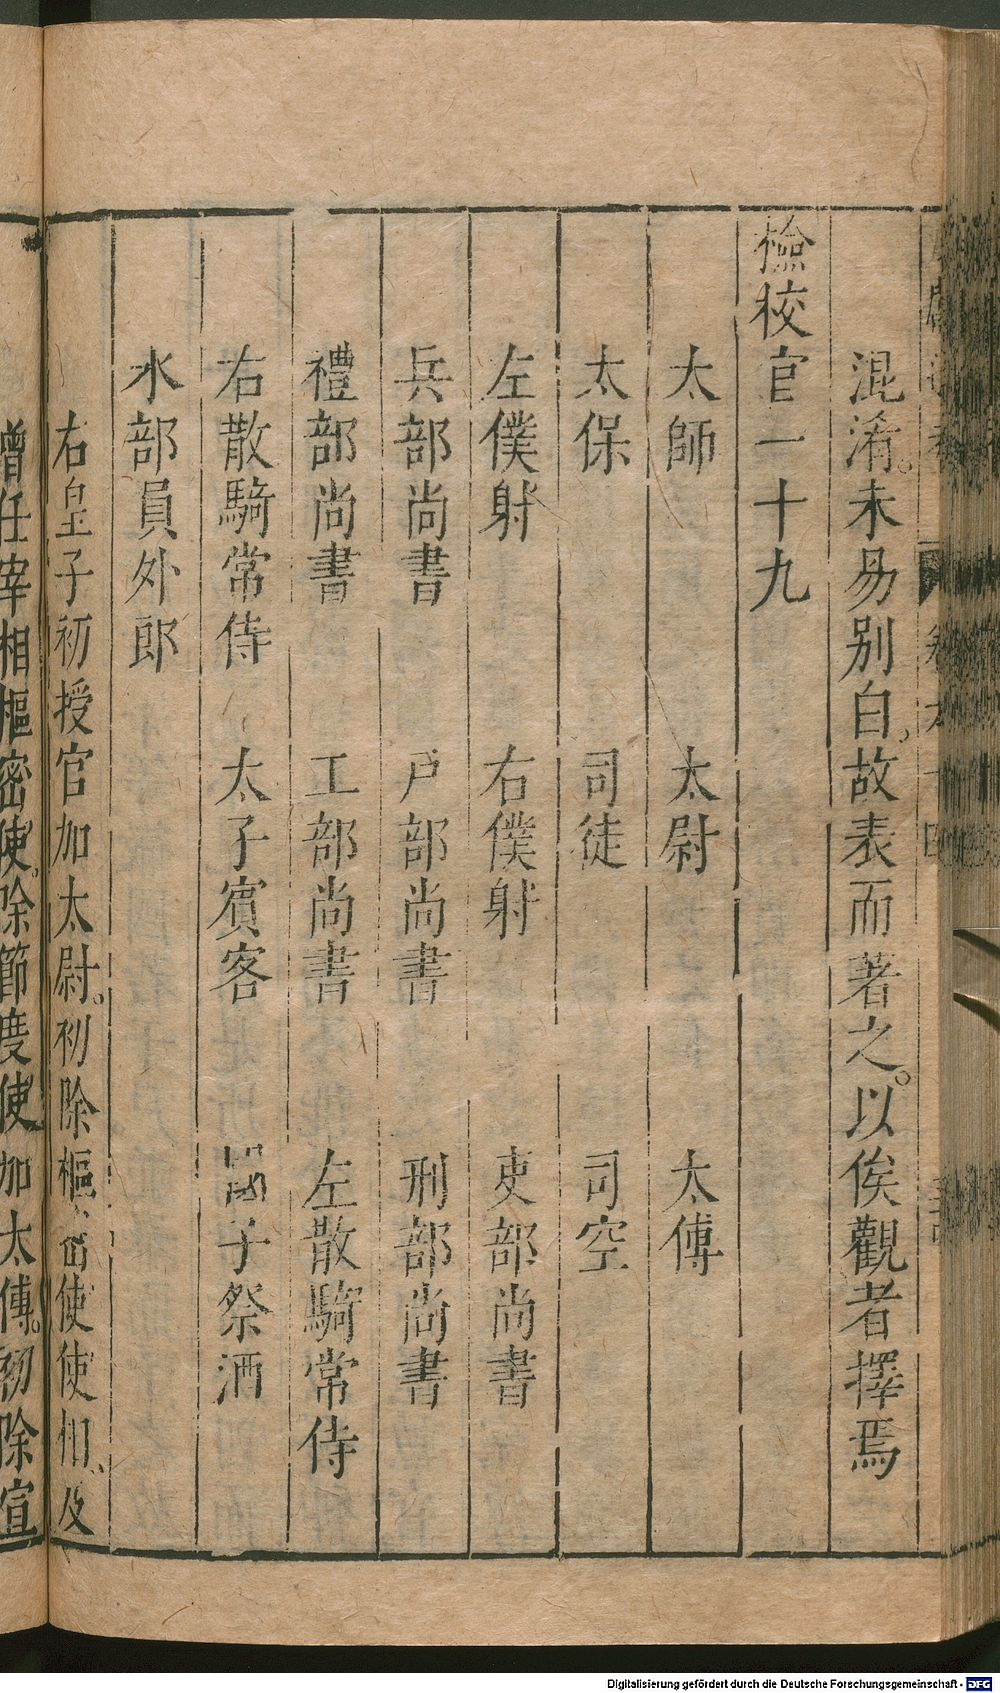 混淆。未易別白。故表而著之。以俟觀者擇焉
檢校官一十九
太師 太尉 太傅
太保 司徒 司空
左僕射 右僕射 吏部尚書
兵部尚書 戶部尚書 刑部尚書
禮部尚書 工部尚書 左散騎常侍
右散騎常侍 太子賓客 國子祭酒
水部員外郎
右皇子初授官加太尉。初除樞密使使相、及
曾任宰相樞密使。除節度使加太傅。初除宣
Digitalisierung gefördert durch die Deutsche Forschungsgemeinschaft - DFG